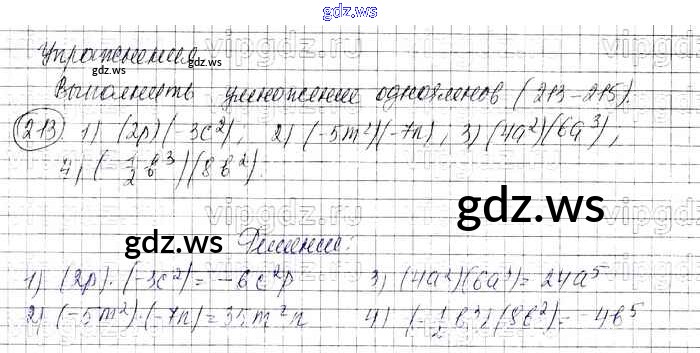 gdz.ws
Упражнения
gdz.ws gdz.ws
Выполнить умножение одночленов (213-215).
213 1) (2p)(-3c²), 2) (-5m²)(-7n), 3) (4a²)(6a³),
4) (-1/2 b³)(8b²).
gdz.ws
gdz.ws
Решение:
1) (2p)·(-3c²) = -6c²p 3) (4a²)(6a³) = 24a⁵
2) (-5m²)·(-7n) = 35m²n 4) (-1/2 b³)(8b²) = -4b⁵
gdz.ws gdz.ws